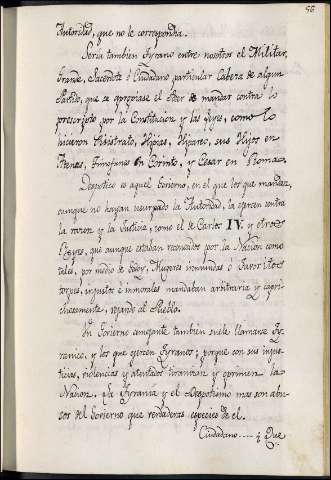 56
Autoridad, que no le correspondia.
Seria tambien Tyrano entre nosotros el Militar,
Grande, Sacerdote ó Ciudadano particular Cabeza de algun
Partido, que se apropiase el Poder de mandar contra lo
prescripto por la Constitucion y las Leyes, como lo
hicieron Pisistrato, Hipias, Hiparco, sus Hijos en
Atenas, Timofanes en Corinto, y Cesar en Roma.
Despotico es aquel Govierno, en el que los que mandan,
aunque no hayan usurpado la Autoridad, la ejercen contra
la razon y la Justicia, como el de Carlos IV. y otros
Reyes, que aunque estaban reconocidos por la Nacion como
tales, por medio de Mugeres inmundas ó Favoritos
torpes, injustos é inmorales mandaban arbitraria y capri-
chosamente, vejando al Pueblo.
Un Govierno semejante tambien suele llamarse Ty-
ranico, y los que ejercen Tyranos; porque con sus injus-
ticias, violencias y atentados tiranizan y oprimen la
Nacion. La Tyrania y el Despotismo mas son abu-
sos del Govierno que verdaderas especies de el.
Ciudadano.....¿Que